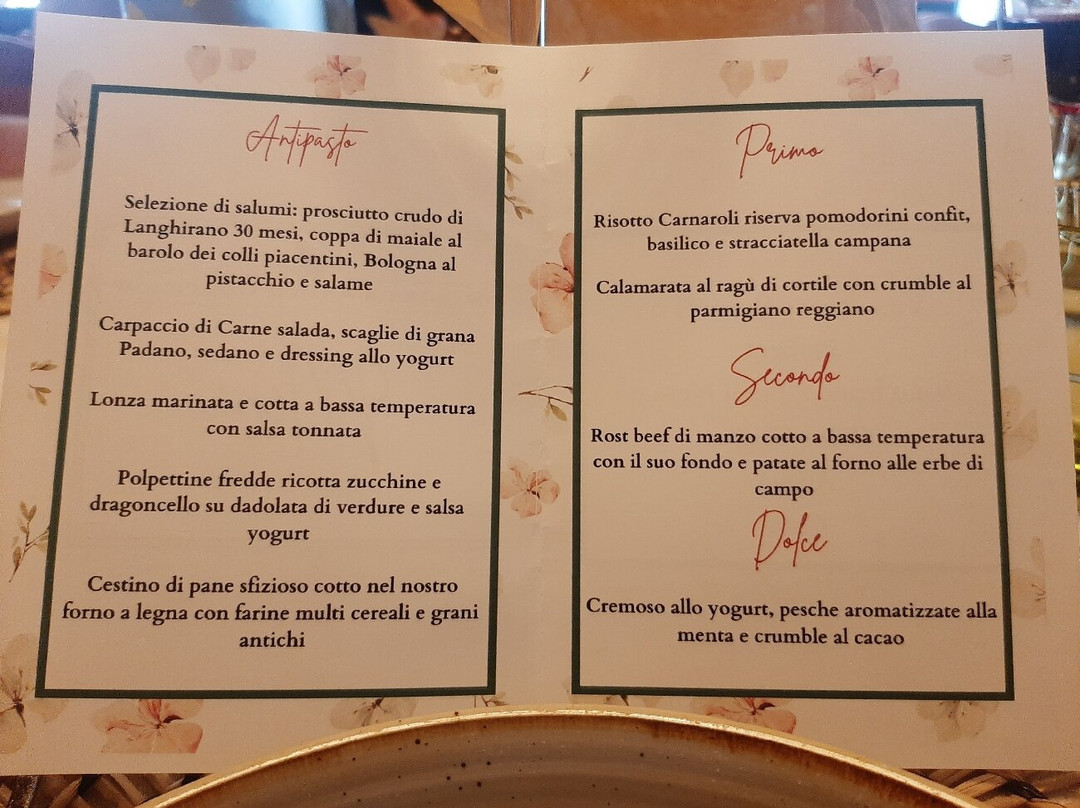 Antipasto
Selezione di salumi: prosciutto crudo di
Langhirano 30 mesi, coppa di maiale al
barolo dei colli piacentini, Bologna al
pistacchio e salame
Carpaccio di Carne salada, scaglie di grana
Padano, sedano e dressing allo yogurt
Lonza marinata e cotta a bassa temperatura
con salsa tonnata
Polpettine fredde ricotta zucchine e
dragoncello su dadolata di verdure e salsa
yogurt
Cestino di pane sfizioso cotto nel nostro
forno a legna con farine multi cereali e grani
antichi
Primo
Risotto Carnaroli riserva pomodorini confit,
basilico e stracciatella campana
Calamarata al ragù di cortile con crumble al
parmigiano reggiano
Secondo
Rost beef di manzo cotto a bassa temperatura
con il suo fondo e patate al forno alle erbe di
campo
Dolce
Cremoso allo yogurt, pesche aromatizzate alla
menta e crumble al cacao